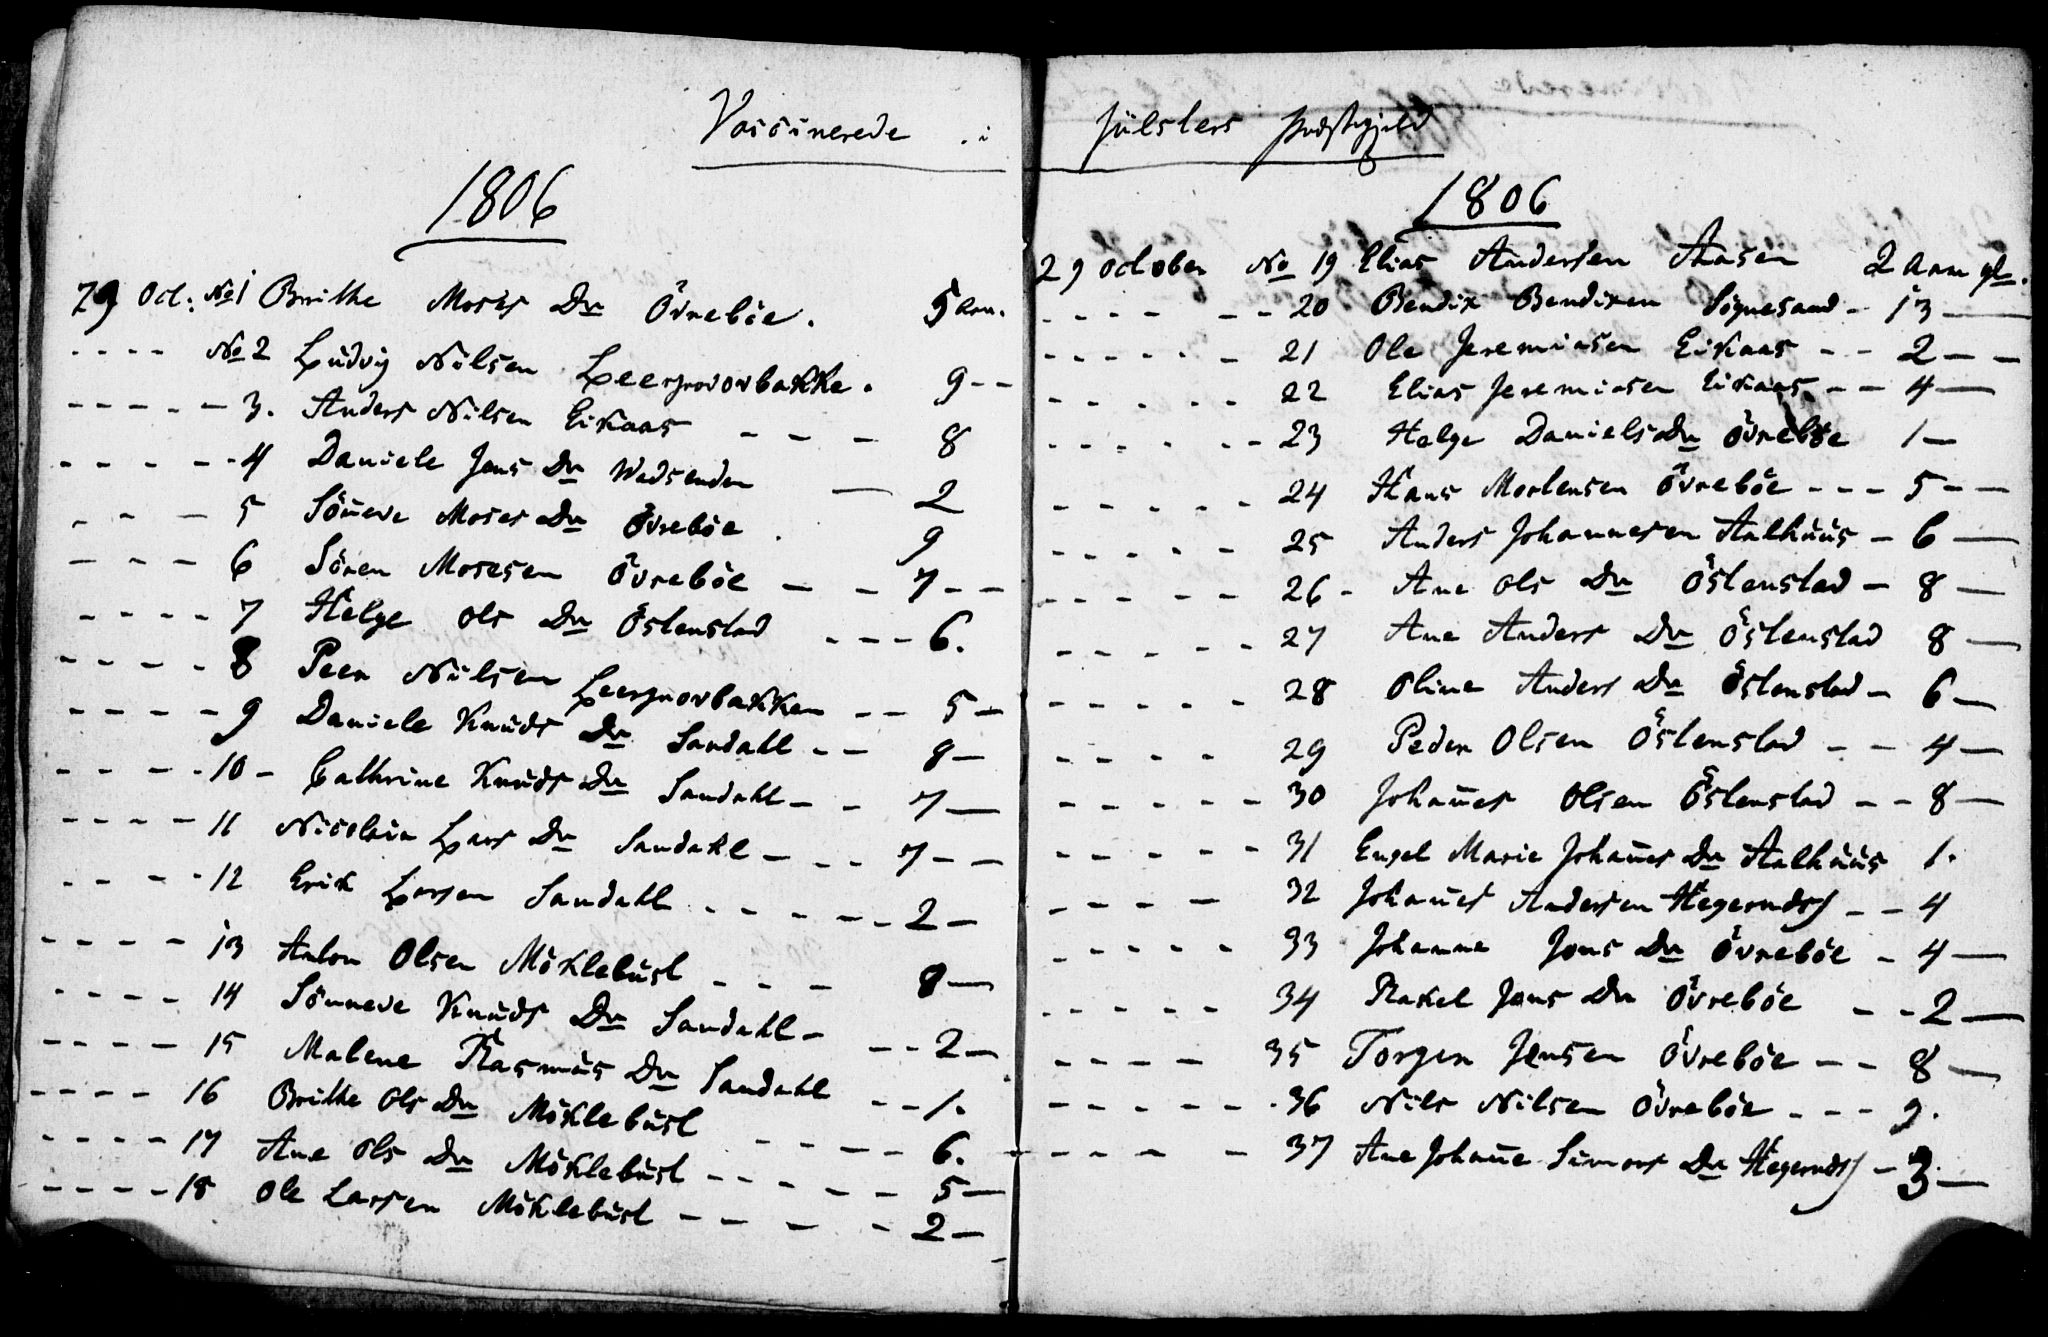 Vaccinerede i Jülsters Præstegjeld
1806
29 Oct: No 1 Brithe Moses Dr Övreböe. 5 Aar.
---- No 2 Ludvig Nilsen Leergrovbakke. 9 --
----- 3. Anders Nilsen Eikaas --- 8
----- 4 Daniele Jens Dr Wadsenden — 2
--- 5 Söneve Moses Dr Övrebøe . 9
---- 6 Sören Mosesen Övreböe -- 7 --
---- 7 Helge Ols Dr Östenstad --- 6.
---- 8 Peer Nilsen Leergrovbakken -- 5 -
----- 9 Daniele Knuds Dr Sandahl -- 8 —
---- 10 - Cathrine Knuds Dr Sandahl -- 7 —
---- 11 Nicolein Lars Dr Sandahl --- 7 --
---- 12 Erik Larsen Sandahl ----- 2 —
---- 13 Anton Olsen Möklebust --- 8 —
---- 14 Sönneve Knuds Dr Sandahl --- 2 —
---- 15 Malene Rasmus Dr Sandahl -- 1.
---- 16 Brithe Ols Dr Möklebust ---- 6.
---- 17 Ane Ols Dr Möklebust ----- 5 —
---- 18 Ole Larsen Möklebust ---- 2 —
1806
29 October No 19 Elias Andersen Aasen 2 Aar gl.
---- -- 20 Bendix Bendixen Sögnesand - 13 —
------ 21 Ole Jeremiasen Eikaas -- 2 --
----- 22 Elias Jeremiasen Eikaas -- 4 —
------ 23 Helge Daniels Dr Övreböe 1 —
----- 24 Hans Mortensen Övreböe --- 5 --
----- 25 Anders Johannesen Aalhuus - 6 —
----- 26 - Ane Ols Dr Östenstad - 8 —
----- 27 Ane Anders Dr Östenstad 8 —
----- 28 Oline Anders Dr Östenstad - 6 —
---- 29 Peder Olsen Östenstad -- 4 —
----- 30 Johanes Olsen Östenstad -- 8 —
----- 31 Engel Marie Johanes Dr Aalhuus 1.
---- 32 Johanes Andersen -- 4
---- 33 Johanne Jens Dr Övreböe - 4 —
----- 34 Rakel Jens Dr Övreböe -- 2 —
---- 35 Torger Jensen Övreböe -- 8 —
----- 36 Nils Nilsen Övreböe --- 9.
---- 37 Ane Johane Simons Dr - 3 —